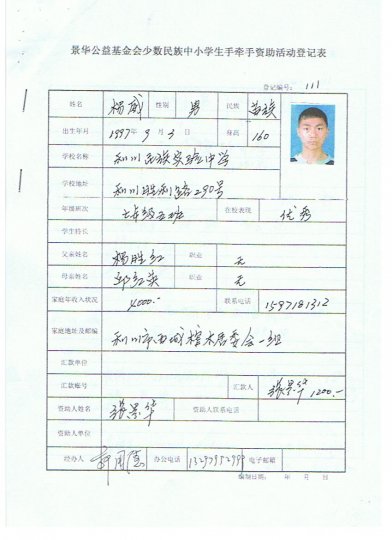 景华公益基金会少数民族中小学生手牵手资助活动登记表
登记编号: 111
姓名 杨威 性别 男 民族 苗族
出生年月 1997年9月3日 身高 160
学校名称 利川民族实验中学
学校地址 利川胜利路290号
年级班次 七年级五班 在校表现 优秀
学生特长
父亲姓名 杨胜红 职业 无
母亲姓名 邱红英 职业 无
家庭年收入状况 4000.- 联系电话 1597181312
家庭地址及邮编 利川市西城榨木居委会一组
汇款单位
汇款账号 汇款人 张景华 1200.-
资助人姓名 张景华 资助人联系电话
资助人单位
经办人 办公电话 13297952999 电子邮箱
编制日期: 年 月 日